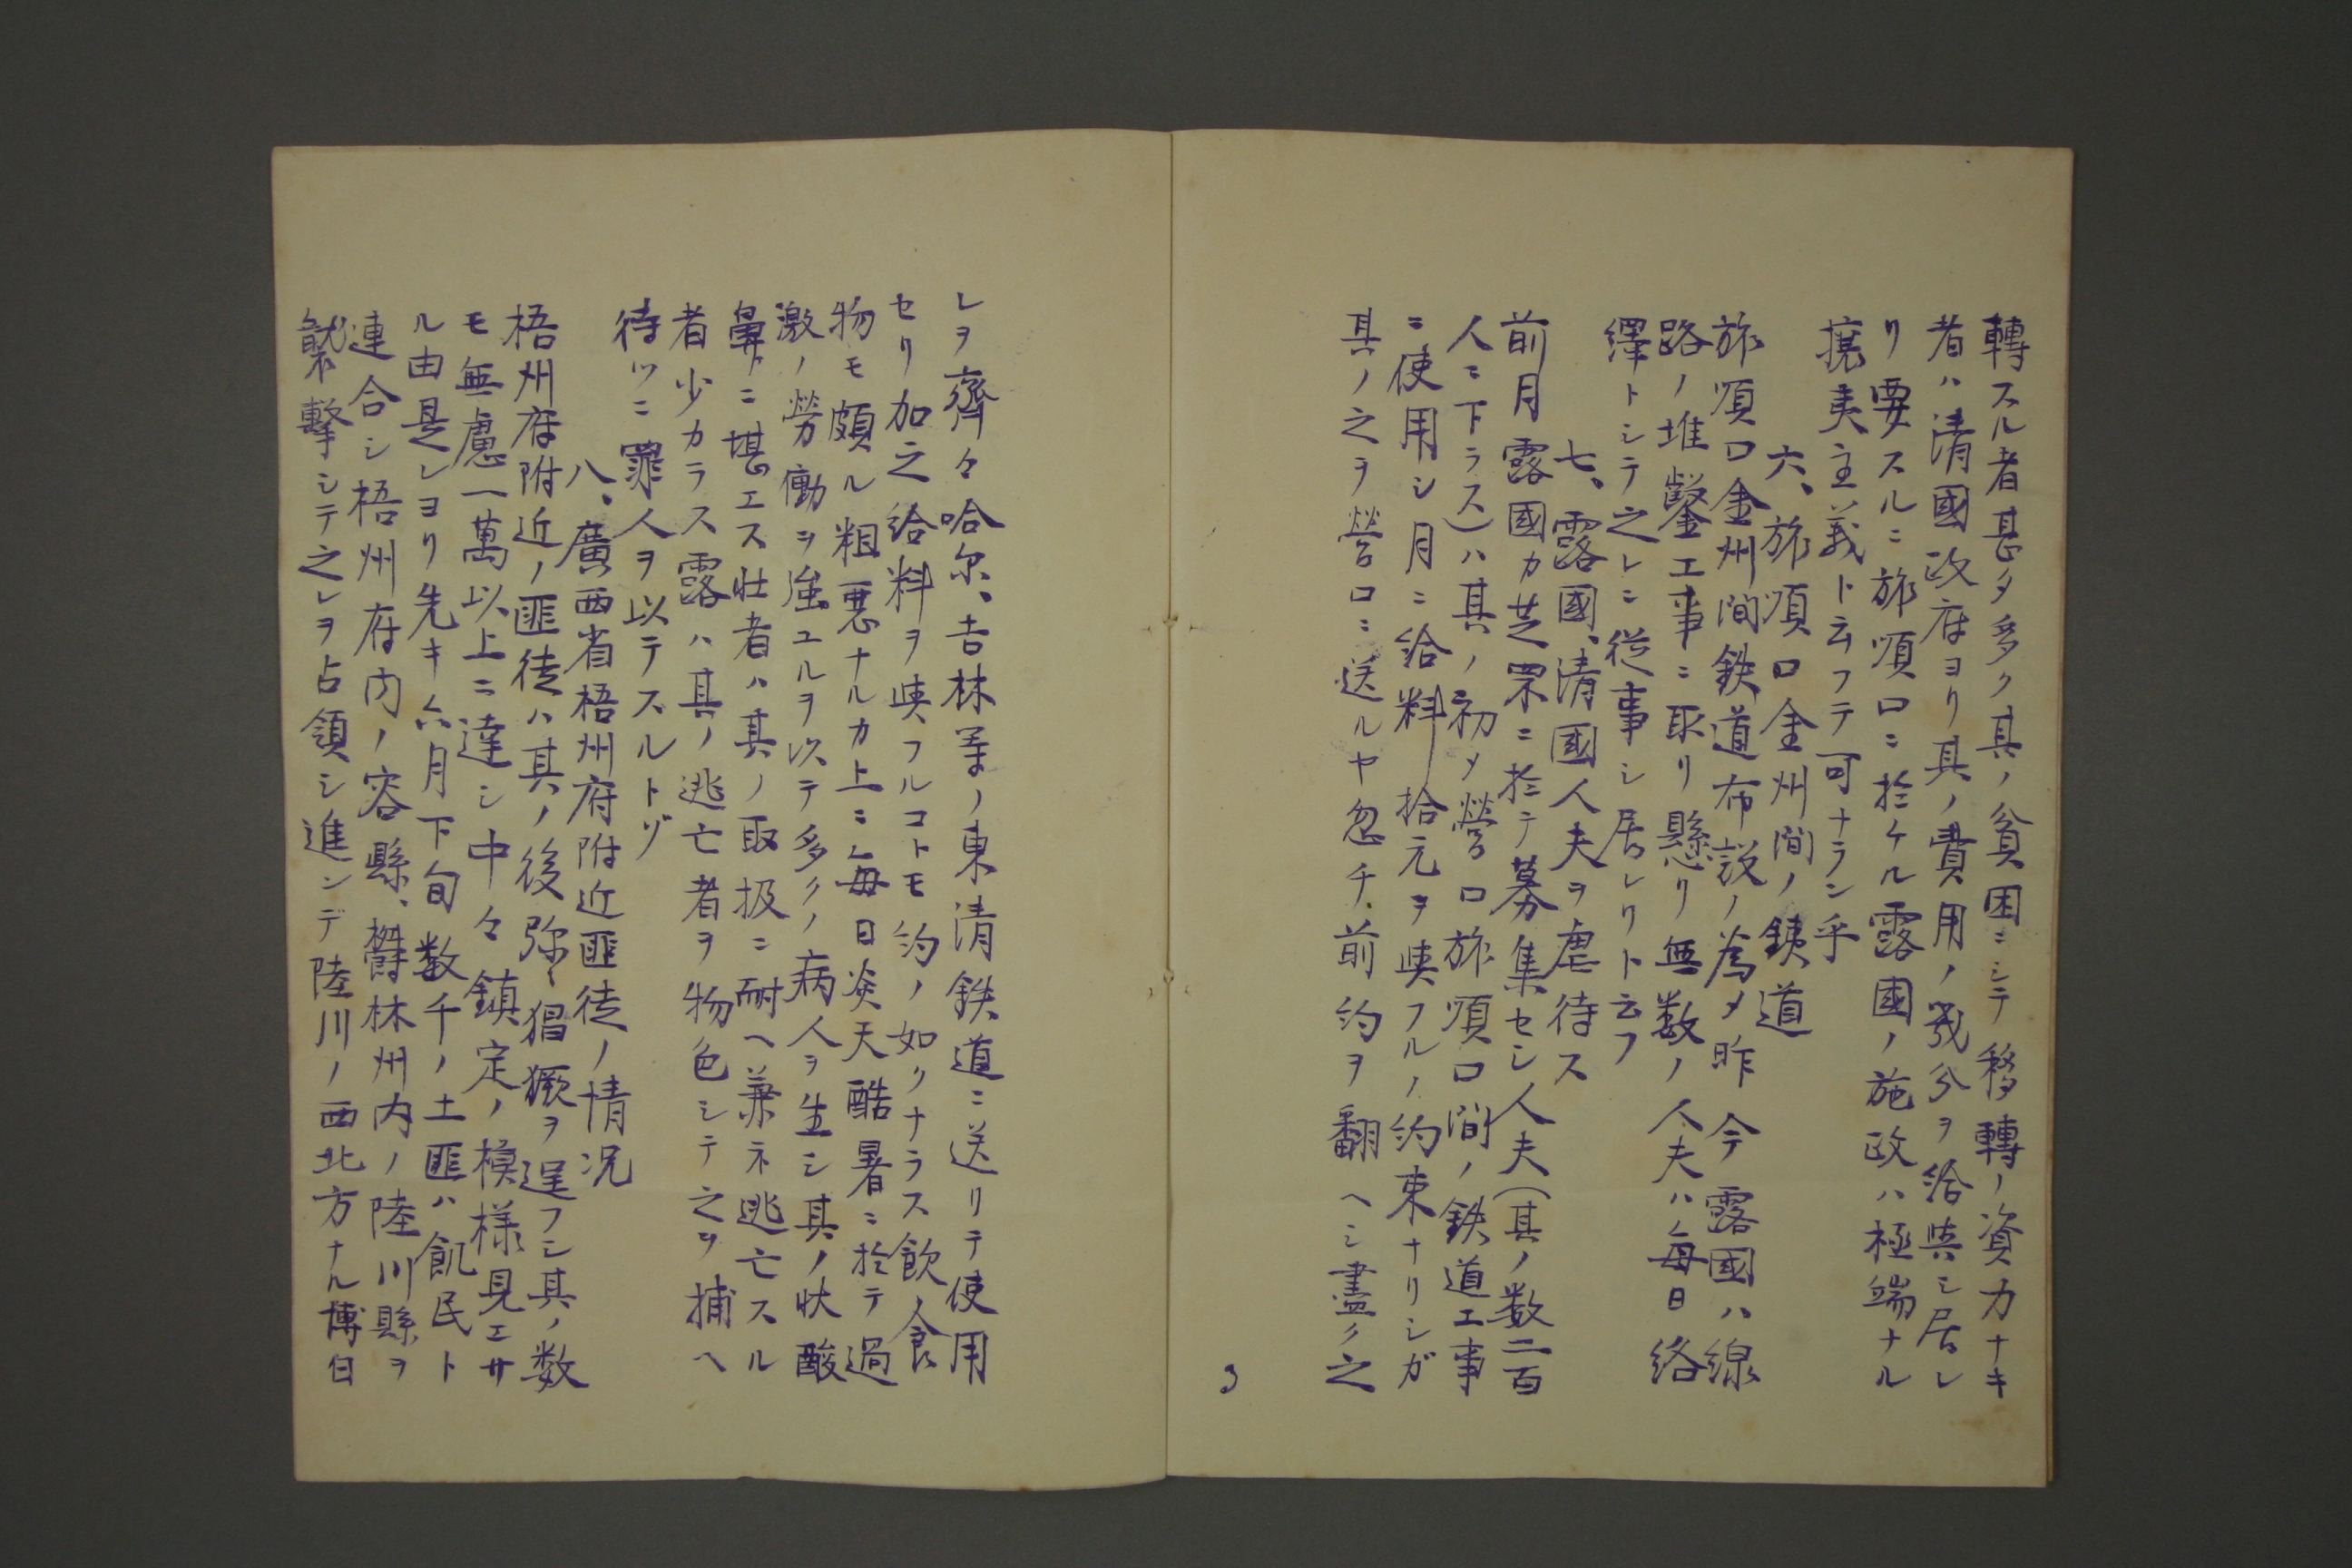 轉スル者甚タ多ク其ノ貧困ニシテ移轉ノ資力ナキ
者ハ清國政府ヨリ其ノ費用ノ幾分ヲ給與シ居レ
リ要スルニ旅順口ニ於ケル露國ノ施政ハ極端ナル
攘夷主義ト云フテ可ナラン乎
六、旅順口金州間ノ鉄道
旅順口金州間鉄道布設ノ為メ昨今露國ハ線
路ノ堆鑿工事ニ取リ懸リ無数ノ人夫ハ毎日絡
繹トシテ之レニ従事シ居レリト云フ
七、露國、清國人夫ヲ虐待ス
前月露國カ芝罘ニ於テ募集セシ人夫(其ノ数二百
人ニ下ラス)ハ其ノ初メ營口旅順口間ノ鉄道工事
ニ使用シ月ニ給料拾元ヲ與フルノ約束ナリシガ
其ノ之ヲ營口ニ送ルヤ忽チ前約ヲ翻ヘシ盡ク之
3
レヲ齊々哈尓、吉林等ノ東清鉄道ニ送リテ使用
セリ加之給料ヲ與フルコトモ約ノ如クナラス飲食
物モ頗ル粗悪ナルカ上ニ毎日炎天酷暑ニ於テ過
激ノ勞働ヲ強ユルヲ以テ多クノ病人ヲ生シ其ノ状酸
鼻ニ堪エス壮者ハ其ノ取扱ニ耐ヘ兼ネ逃亡スル
者少カラス露ハ其ノ逃亡者ヲ物色シテ之ヲ捕ヘ
待ツニ罪人ヲ以テスルトゾ
八、廣西省梧州府附近匪徒ノ情况
梧州府附近ノ匪徒ハ其ノ後弥々猖獗ヲ逞フシ其ノ数
モ無慮一萬以上ニ達シ中々鎮定ノ模様見エサ
ル由是レヨリ先キ六月下旬数千ノ土匪ハ飢民ト
連合シ梧州府内ノ容縣、欝林州内ノ陸川縣ヲ
襲撃シテ之レヲ占領シ進ンデ陸川ノ西北方ナル博白